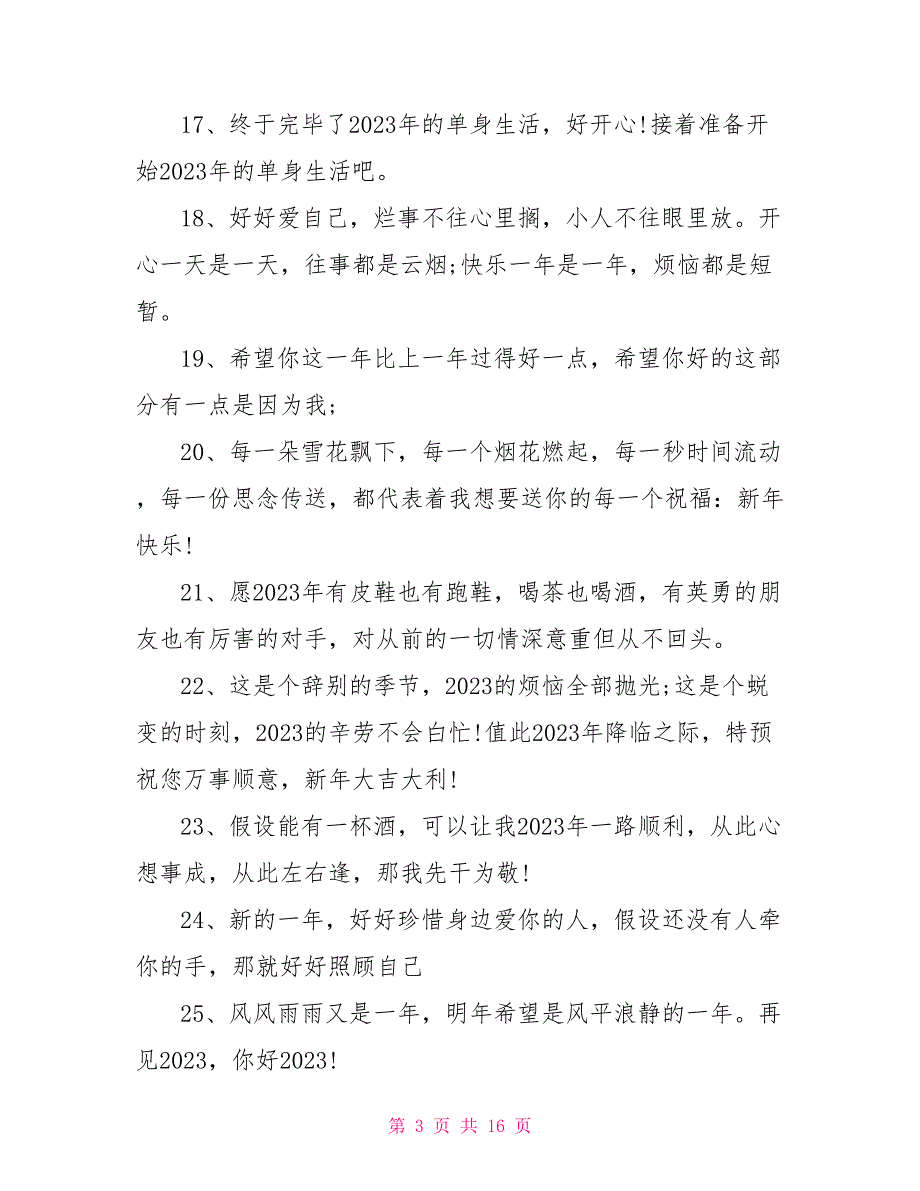 17、终于完毕了2023年的单身生活，好开心!接着准备开
始2023年的单身生活吧。
18、好好爱自己，烂事不往心里搁，小人不往眼里放。开
心一天是一天，往事都是云烟;快乐一年是一年，烦恼都是短
暂。
19、希望你这一年比上一年过得好一点，希望你好的这部
分有一点是因为我;
20、每一朵雪花飘下，每一个烟花燃起，每一秒时间流动
，每一份思念传送，都代表着我想要送你的每一个祝福：新年
快乐!
21、愿2023年有皮鞋也有跑鞋，喝茶也喝酒，有英勇的朋
友也有厉害的对手，对从前的一切情深意重但从不回头。
22、这是个辞别的季节，2023的烦恼全部抛光;这是个蜕
变的时刻，2023的辛劳不会白忙!值此2023年降临之际，特预
祝您万事顺意，新年大吉大利!
23、假设能有一杯酒，可以让我2023年一路顺利，从此心
想事成，从此左右逢，那我先干为敬!
24、新的一年，好好珍惜身边爱你的人，假设还没有人牵
你的手，那就好好照顾自己
25、风风雨雨又是一年，明年希望是风平浪静的一年。再
见2023，你好2023!
第 3 页 共 16 页